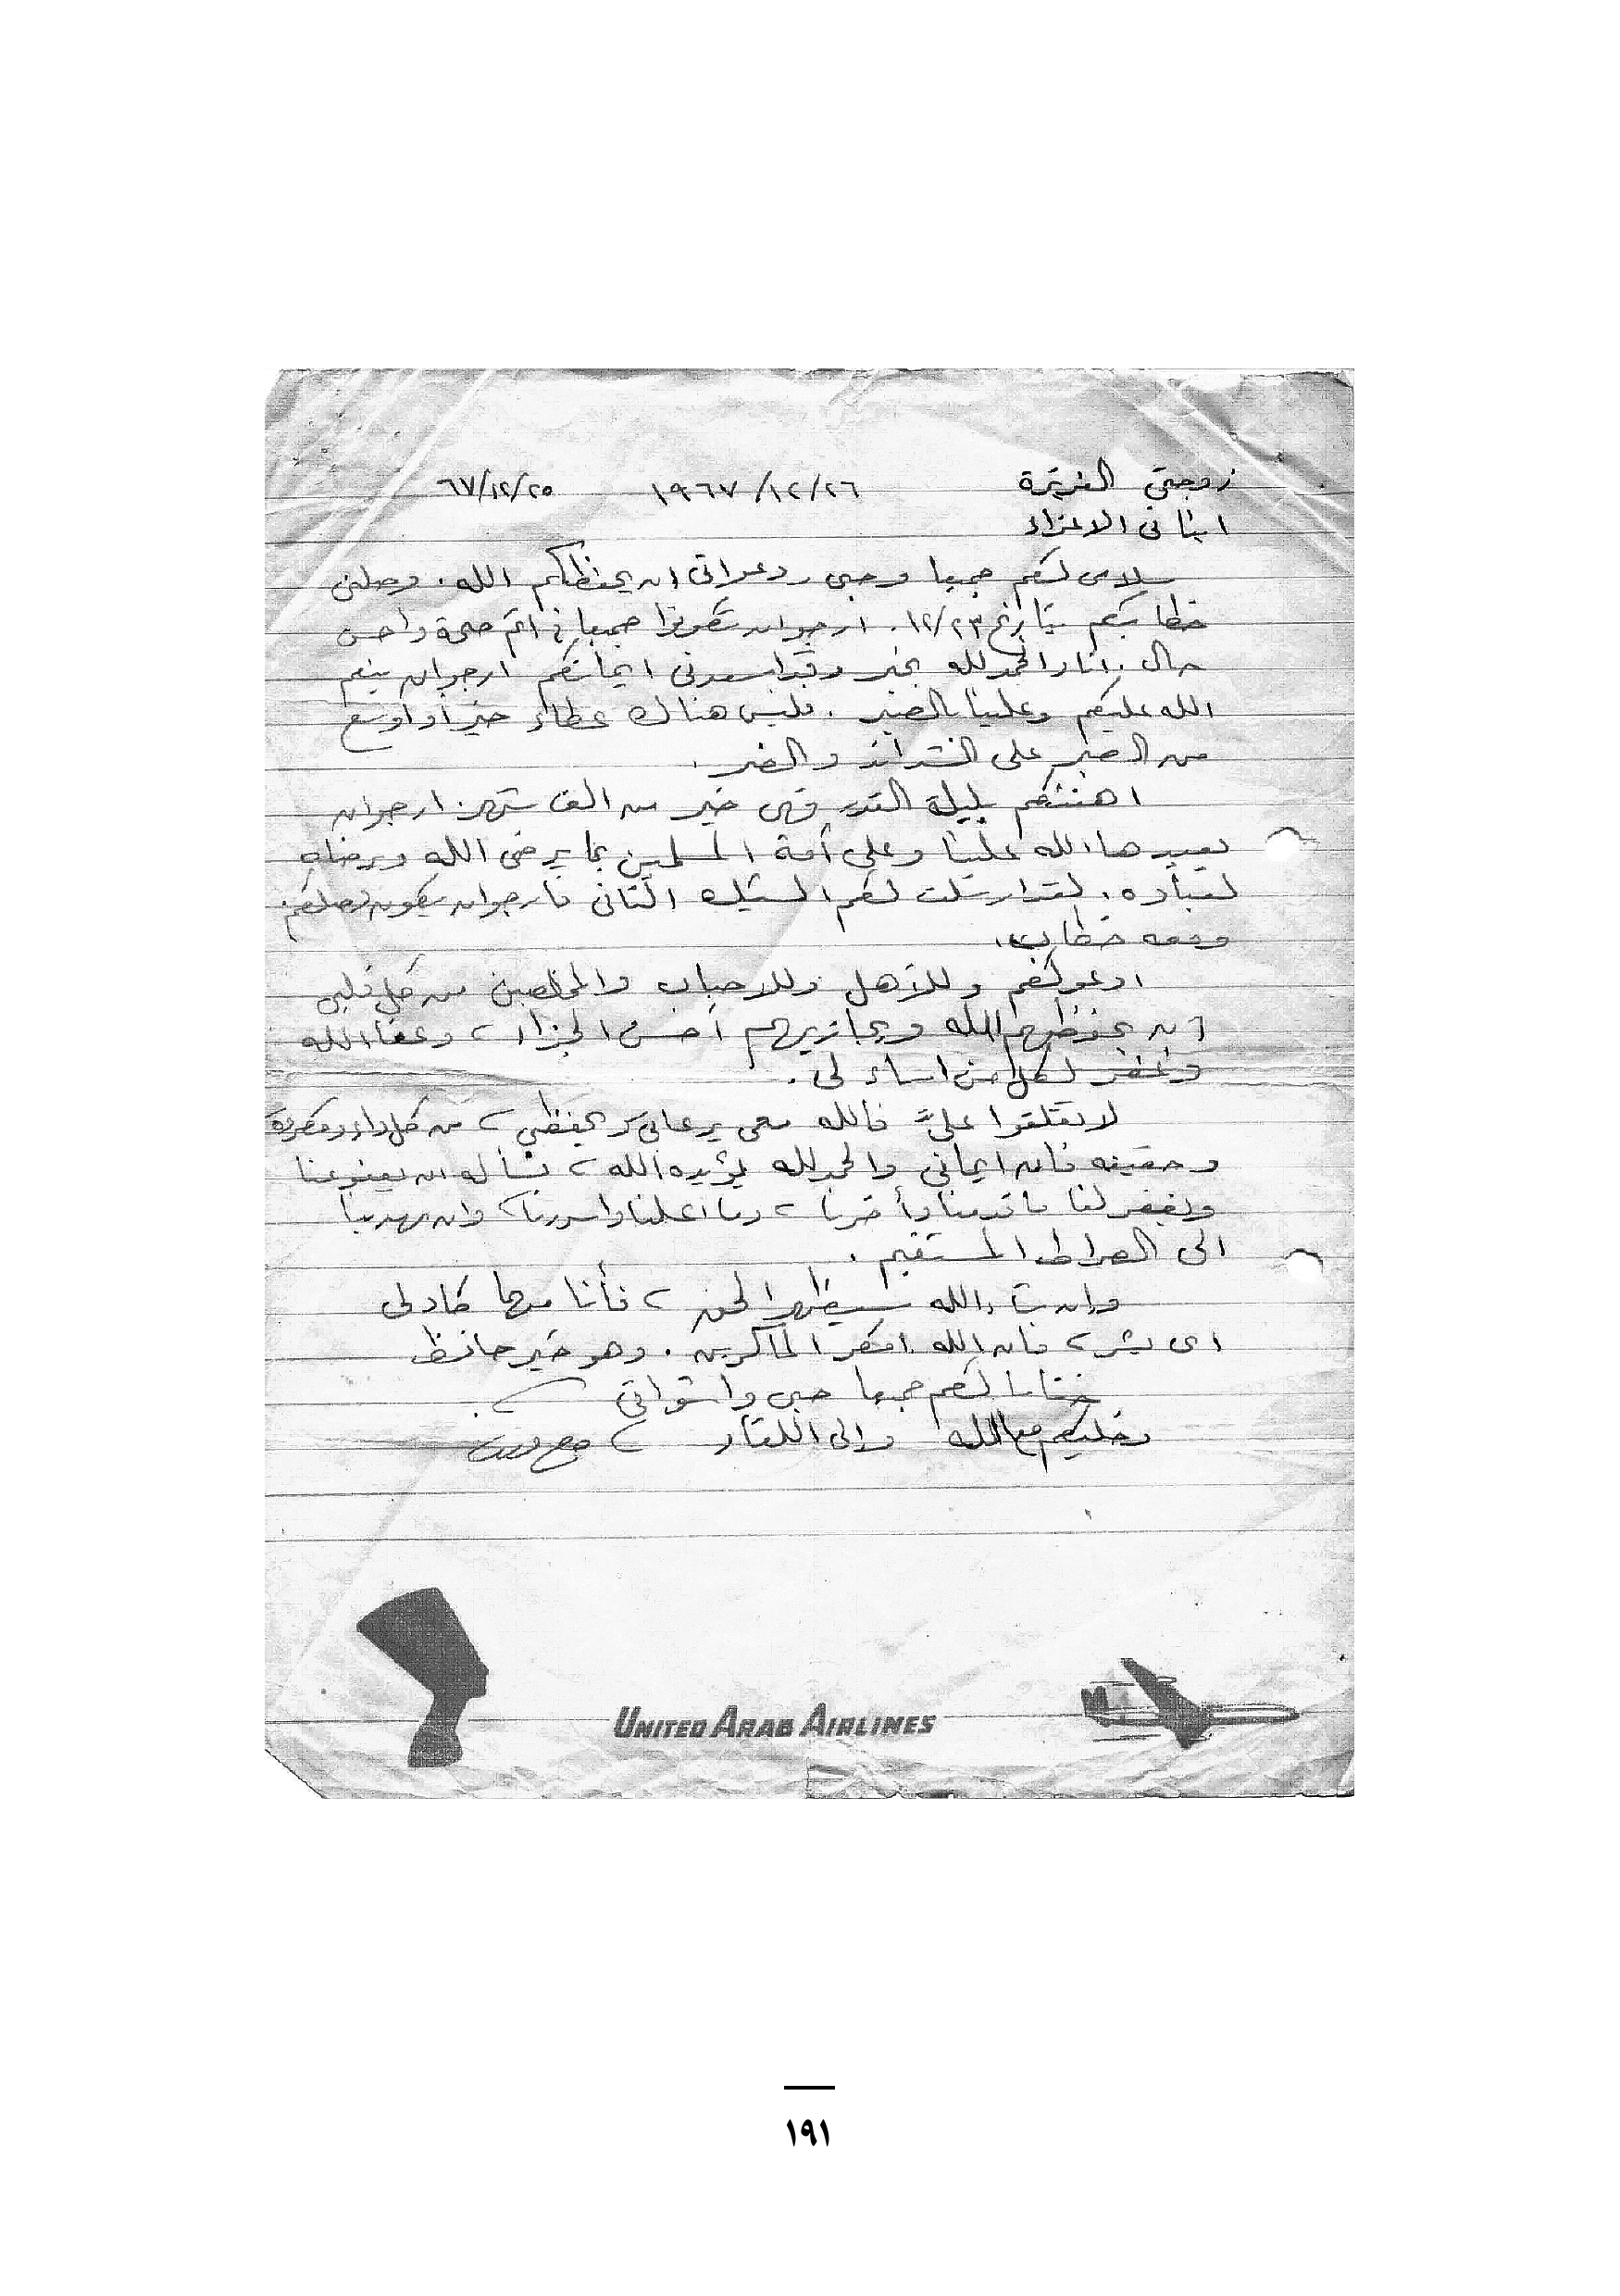 زوجتى العزيزة ٢٦/١٢/١٩٦٧ ٢٥/١٢/٦٧
ابنائى الاعزاء
سلامى لكم جميعا وحبى ودعواتى ان يحفظكم الله. وصلنى
خطابكم بتاريخ ١٢/٢٣. ارجو ان تكونوا جميعا فى اتم صحة واحسن
حال. انا والحمد لله بخير وقد اسعدنى ايمانكم ارجو ان ينعم
الله عليكم وعلينا بالصبر. فليس هناك عطاء خيرا واوسع
من الصبر على الشدائد والضر.
اهنئكم بليلة القدر فهى خير من الف شهر. ارجو ان
يعيدها الله علينا وعلى أمة المسلمين بما يرضى الله ويرضاه
لعباده. لقد ارسلت لكم الشيك الثانى فارجو ان يكون وصلكم
ومعه خطاب.
ادعو لكم وللأهل وللاحباب والمخلصين من كل قلبى
أن يحفظهم الله ويجازيهم أحسن الجزاء، وعفا الله
وغفر لكل من اساء لى.
لا تقلقوا علىَّ فالله معى يرعانى ويحفظنى، من كل داء ومكروه
وحقيقه فان ايمانى والحمد لله يؤيده الله، نسأله ان يعفو عنا
ويغفر لنا ما قدمنا وأخرنا، وما اعلنا واسررنا، وان يهدينا
الى الصراط المستقيم.
وان شاء الله سيظهر الحق، فأنا مهما كاد لى
اى بشر، فان الله امكر الماكرين. وهو خير حافظ
ختاما لكم جميعا حبى واشواقى
وخليكم مع الله والى اللقاء،
UNITED ARAB AIRLINES
١٩١